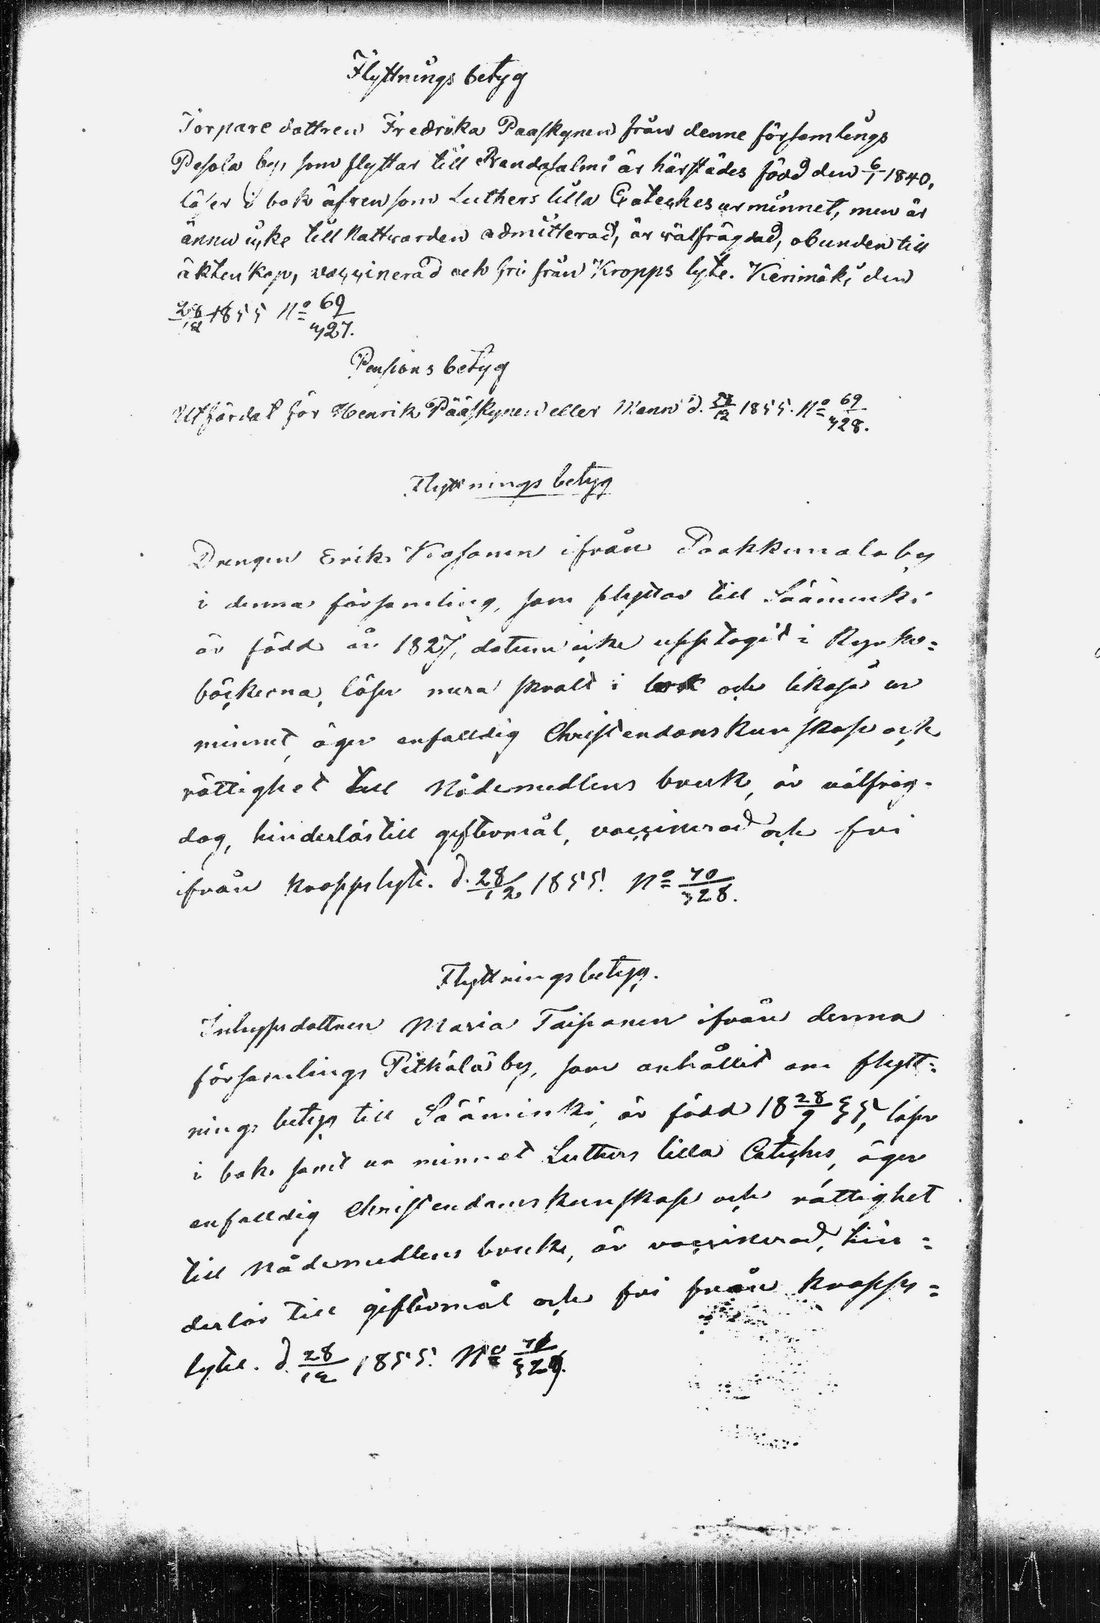 Flyttnings betyg
Torpare dottren Fredrika Paaskynen från denne församlings
Pesola by, som flyttar till Randasalmi är härstädes född den 6/1 1840,
läser i bok äfven som Luthers lilla Cateches ur minnet, men är
ännu icke till Nattvarden admitterad, är välfrägdad, obunden till
äktenskap, vaccinerad och fri från Kropps lyte. Kerimäki den
28/12 1855 No 69/427.
Pensions betyg
Utfärdat för Henrik Pääskynen eller Mann d. 28/12 1855. No 69/428.
Flyttnings betyg
Drengen Erik Kosonen ifrån Paakkunala by
i denna församling, som flyttar till Sääminki
är född år 1827, datum icke upptagit i Kyrko=
böckerna, läser mera svalt i bok och likaså ur
minnet, äger enfalldig Christendomskunskap och
rättighet till Nådemedlens bruk, är välfräg-
dag, hinderlös till giftermål, vaccinerad och fri
ifrån kroppslyte. d. 28/12 1855. No 70/328.
Flyttningsbetyg.
Inhyses dottren Maria Taipanen ifrån denna
församlings Pitkälä by, som anhållit om flytt=
nings betyg till Sääminki, är född 18 28/9 35, läser
i bok samt ur minnet Luthers lilla Cateches, äger
enfalldig Christendomskunskap och rättighet
till Nådemedlens bruk, är vaccinerad, hin=
derlös till giftermål och fri från kropps=
lyte. d. 28/12 1855. No